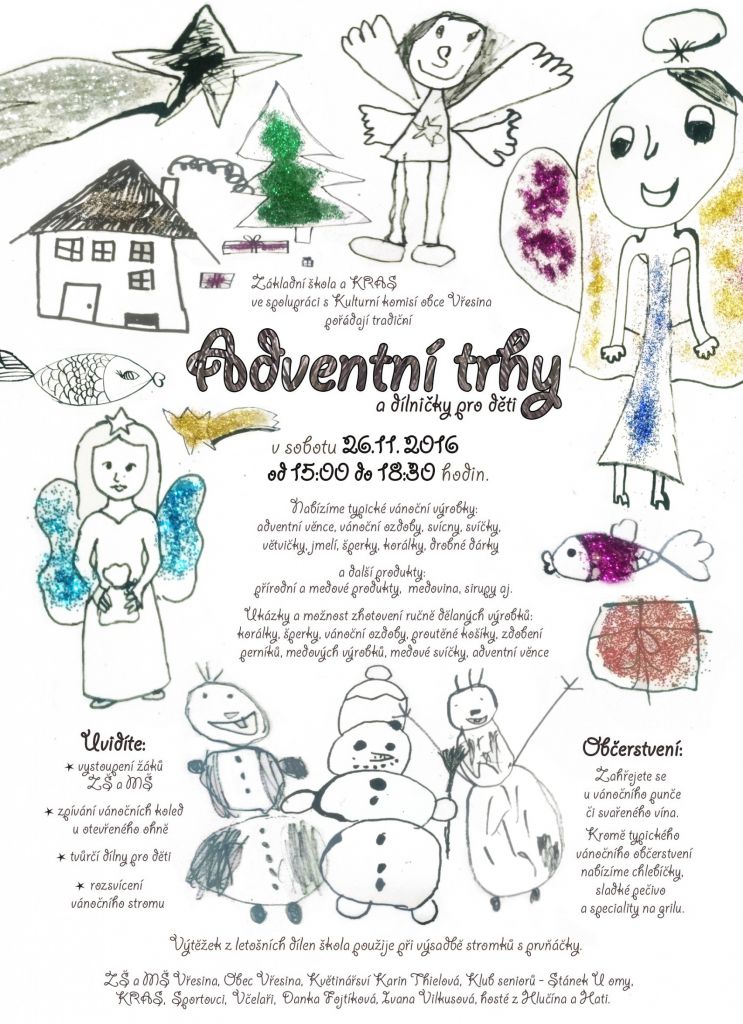 Základní škola a KRAS
ve spolupráci s Kulturní komisí obce Vřesina
pořádají tradiční
Adventní trhy
a dílničky pro děti
v sobotu 26.11. 2016
od 15:00 do 18:30 hodin.
Nabízíme typické vánoční výrobky:
adventní věnce, vánoční ozdoby, svícny, svíčky,
větvičky, jmelí, šperky, korálky, drobné dárky
a další produkty:
přírodní a medové produkty, medovina, sirupy aj.
Ukázky a možnost zhotovení ručně dělaných výrobků:
korálky, šperky, vánoční ozdoby, proutěné košíky, zdobení
perníků, medových výrobků, medové svíčky, adventní věnce
Uvidíte:
★ vystoupení žáků
ZŠ a MŠ
★ zpívání vánočních koled
u otevřeného ohně
★ tvůrčí dílny pro děti
★ rozsvícení
vánočního stromu
Občerstvení:
Zahřejete se
u vánočního punče
či svařeného vína.
Kromě typického
vánočního občerstvení
nabízíme chlebíčky,
sladké pečivo
a speciality na grilu.
Výtěžek z letošních dílen škola použije při výsadbě stromků s prvňáčky.
ZŠ a MŠ Vřesina, Obec Vřesina, Květinářsví Karin Thielová, Klub seniorů - Stánek U omy,
KRAS, Sportovci, Včelaři, Danka Fojtíková, Ivana Vilkusová, hosté z Hlučína a Hati.